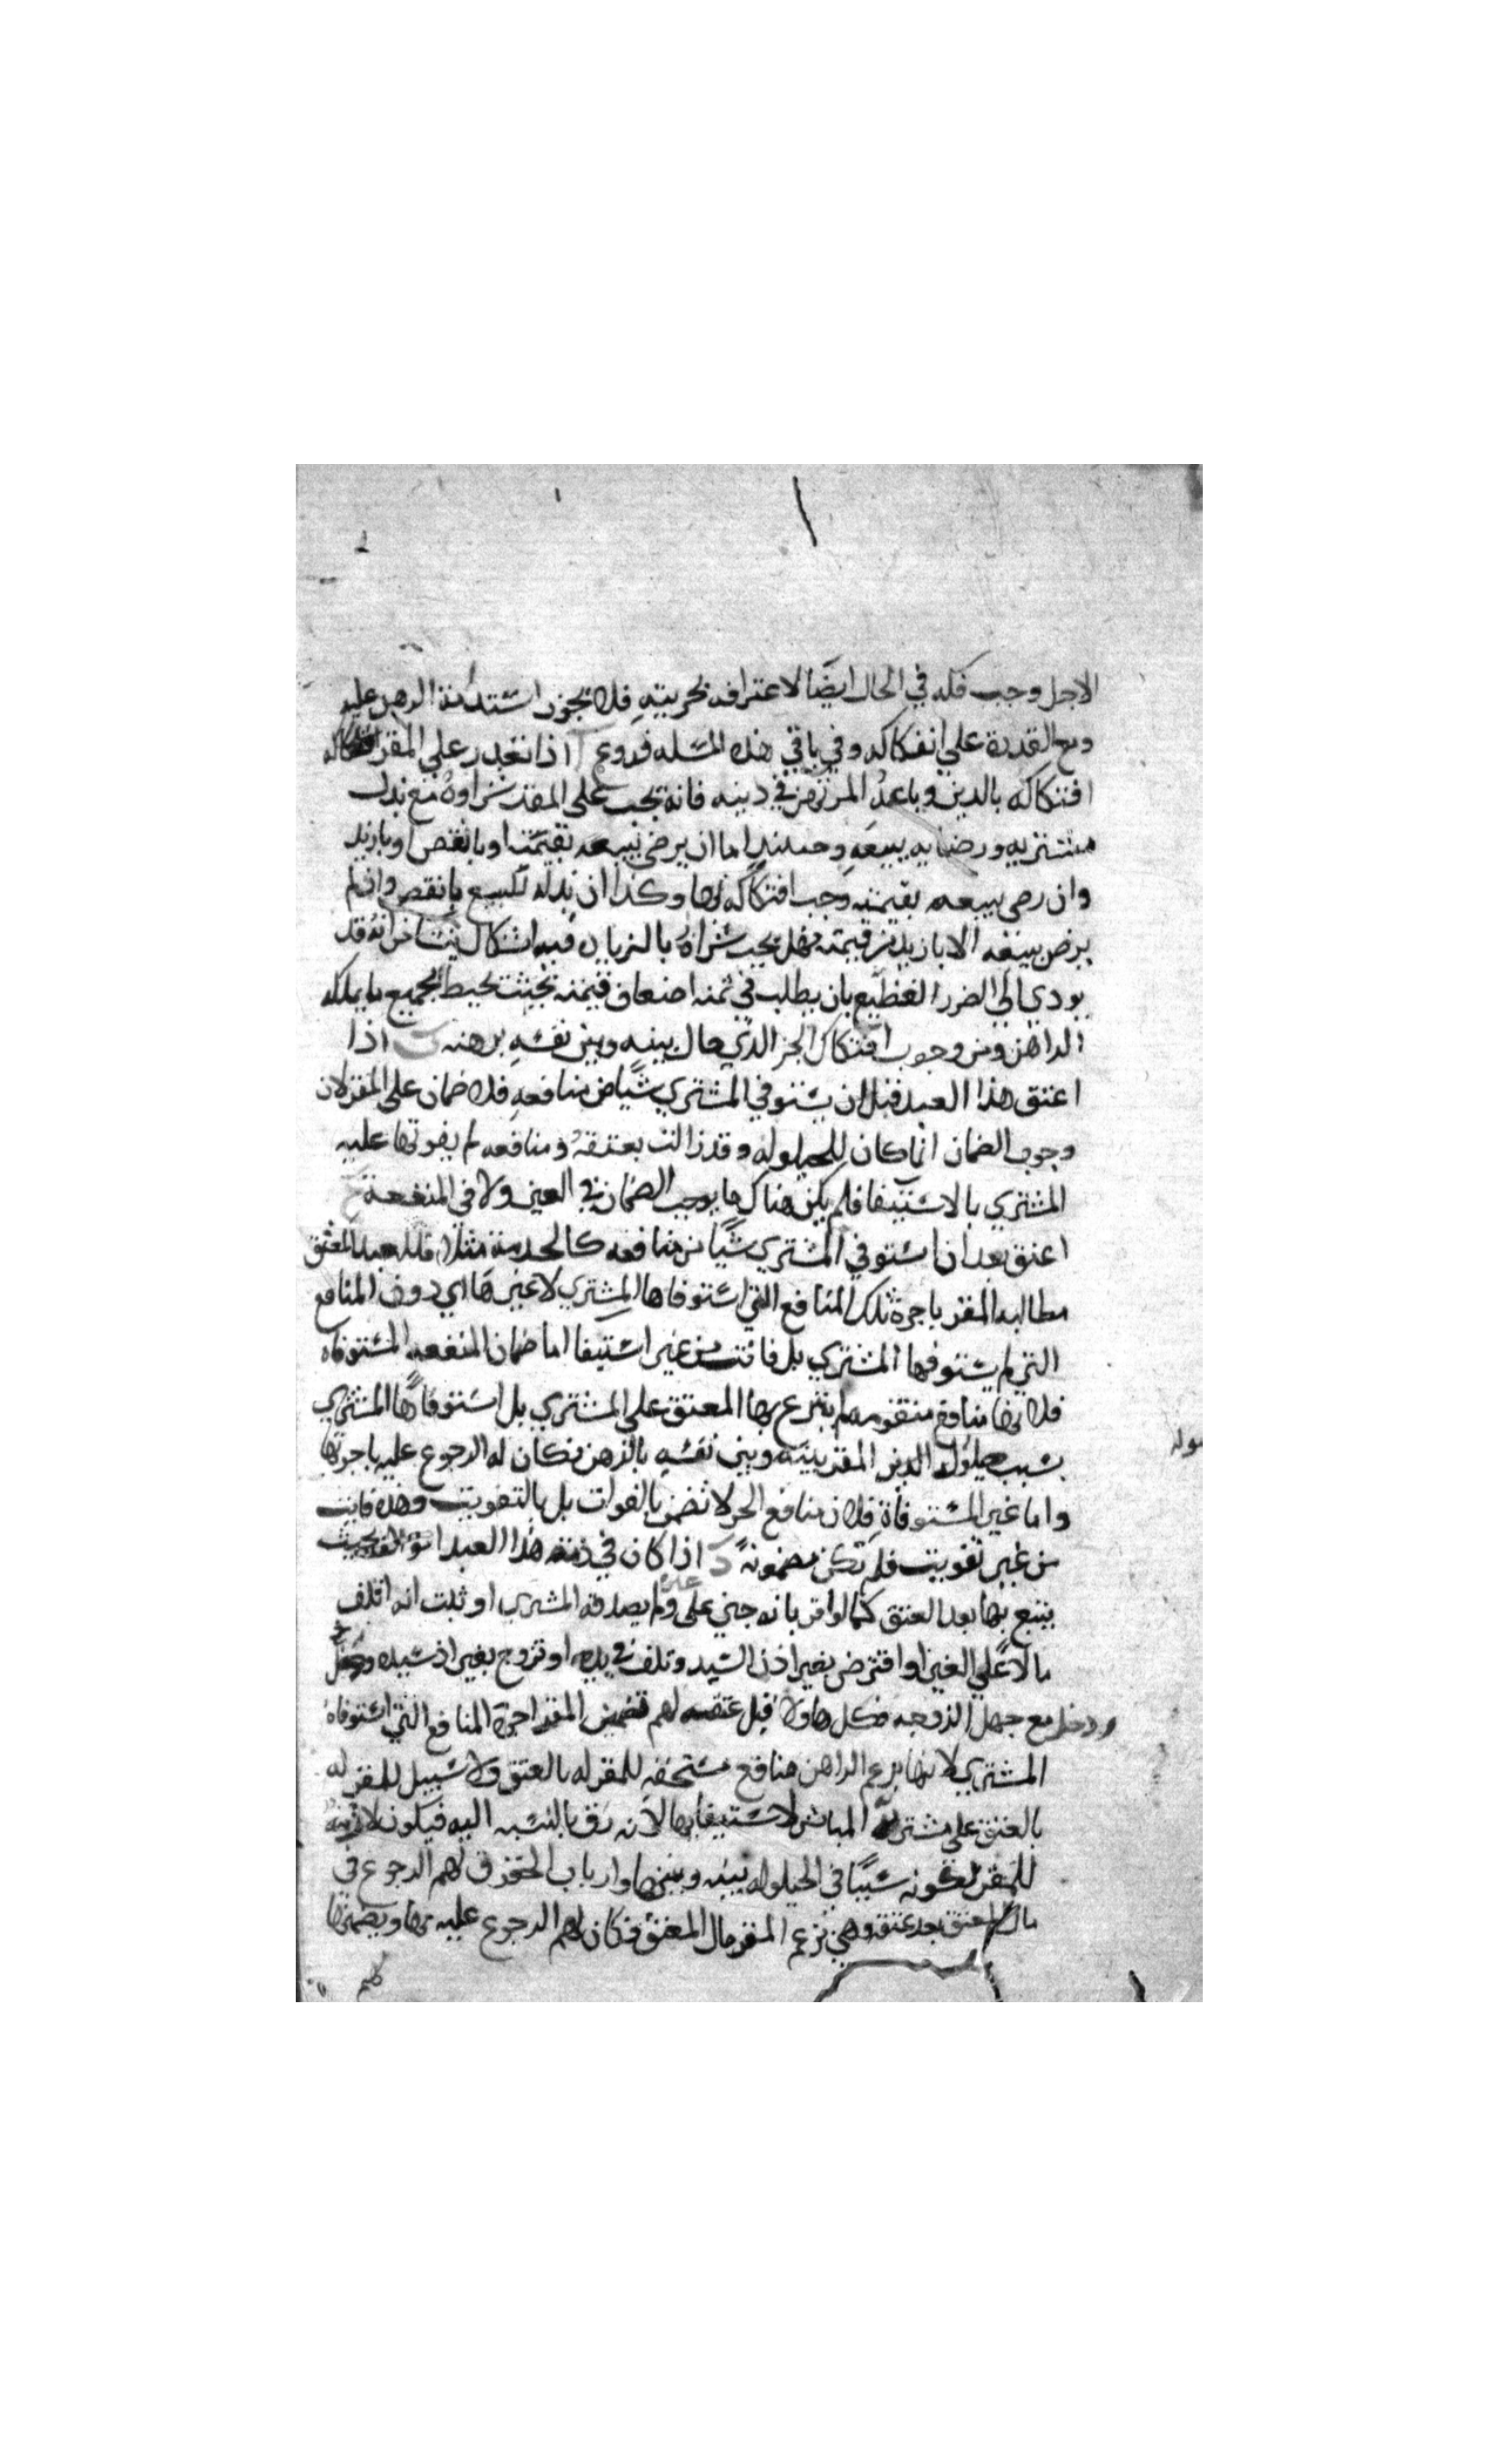 الاجل وجب فكه في الحال ايضًا لاعترافه بحريته فلا تجوز استدامة الرهن عليه
ومع القدرة علي انفكاكه وفي باقي هذه المسله فروع ا اذا تعذر علي المقر
افتكاكه بالدين وباعه المرتهن في دينه فانه يجب علي المقر شراوه مع بذل
مشتريه ورضايه ببيعه وحينيذ اما ان يرضي ببيعه بقيمته او بانقص او بازيد
وان رضي ببيعه بقيمته وجب افتكاكه بها وكذا ان بذله للبيع بانقص وان لم
يرض ببيعه الا بازيد من قيمته فهل يجب شراه بالزيادة فيه اشكال ينشا من انه قد
يودي الي الضرر العظيم بان يطلب في ثمنه اضعاف قيمته بحيث تحيط بجميع ما يملكه
الراهن ومن وجوب افتكاك الحر الذي حال بينه وبين نفسه برهنه ب اذا
اعتق هذا العبد قبل ان يستوفي المشتري شيًا من منافعه فلا ضمان علي المقر لان
وجوب الضمان انما كان للحيلوله وقد زالت بعتقه ومنافعه لم يفوتها عليه
المشتري بالاستيفا فلم يكن هناك ما يوجب الضمان في العين ولا في المنفعة ج
اعتق بعد ان استوفي المشتري شيًا من منافعه كالخدمة مثلا فله بعد العتق
مطالبه المقر باجرة تلك المنافع التي استوفاها المشتري لا غيرها اي دون المنافع
التي لم يستوفها المشتري بل فاتت من غير استيفا اما ضمان المنفعه المستوفاه
فلانها منافع متقومه لم يتبرع بها المعتق علي المشتري بل استوفاها المشتري
بسبب حيلولة المقر بينه وبين نفسه بالرهن فكان له الرجوع عليه باجرتها
واما غير المستوفاة فلان منافع الحر لا تضمن بالفوات بل بالتفويت وهذه فاتت
من غير تفويت فلم تكن مضمونةً د اذا كان في ذمة هذا العبد بحيث
يتبع بها بعد العتق كما لو اقر بانه جني علي ولم يصدقه المشتري او ثبت انه اتلف
مالاً علي الغير او اقترض بغير اذن السيد وتلف في يده او تزوج بغير اذن سيده
ودخل مع جهل الزوجه فكل هاولا قبل عتقه لهم تضمين المقر اجرة المنافع التي استوفاه
المشتري لانها بزعم الراهن منافع مستحقه للمقر له بالعتق ولا سبيل للمقر له
بالعتق علي مشتريه المباشر لاستيفايها لانه رق بالنسبه اليه فيكون
للمقر لكونه سببًا في الحيلوله بينه وبينها وارباب الحقوق لهم الرجوع في
مال المعتق بعد عتقه وهي بزعم المقر مال المعتق فكان لهم الرجوع عليه بها